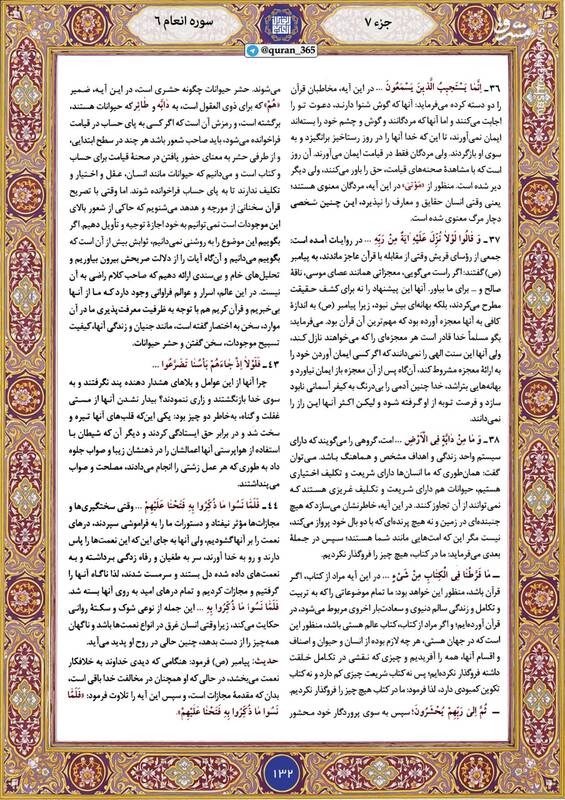 جزء ۷
سوره انعام ۶
@quran_365
۳۶ـ إِنَّمَا يَسْتَجِيبُ الَّذِينَ يَسْمَعُونَ ... در این آیه، مخاطبان قرآن
را دو دسته کرده می‌فرماید: آنها که گوش شنوا دارند، دعوت تو را
اجابت می‌کنند و اما آنها که مردگانند و گوش و چشم خود را بسته‌اند
ایمان نمی‌آورند، تا این که خدا آنها را در روز رستاخیز برانگیزد و به
سوی او بازگردند. ولی مردگان فقط در قیامت ایمان می‌آورند. آن روز
است که با مشاهدهٔ صحنه‌های قیامت، حق را باور می‌کنند، ولی دیگر
دیر شده است. منظور از «مَوْتیٰ» در این آیه، مردگان معنوی هستند؛
یعنی وقتی انسان حقایق و معارف را نپذیرد، این چنین شخصی
دچار مرگ معنوی شده است.
۳۷ـ وَ قَالُوا لَوْلَا نُزِّلَ عَلَيْهِ آيَةٌ مِنْ رَبِّهِ ... در روایات آمده است:
جمعی از رؤسای قریش وقتی از مقابله با قرآن عاجز ماندند، به پیامبر
(ص) گفتند: اگر راست می‌گویی، معجزاتی همانند عصای موسی، ناقهٔ
صالح و ... برای ما بیاور. آنها این پیشنهاد را نه برای کشف حقیقت
مطرح می‌کردند، بلکه بهانه‌ای بیش نبود، زیرا پیامبر (ص) به اندازهٔ
کافی به آنها معجزه آورده بود که مهم‌ترین آن قرآن بود. می‌فرماید:
بگو مسلماً خدا قادر است هر معجزه‌ای را که می‌خواهند نازل کند،
ولی آنها این سنت الهی را نمی‌دانند که اگر کسی ایمان آوردن خود را
به ارائهٔ معجزه مشروط کند، آن‌گاه پس از آن معجزه باز ایمان نیاورد و
بهانه‌هایی بتراشد، خدا چنین آدمی را بی‌درنگ به کیفر آسمانی نابود
سازد و فرصت توبه از او گرفته شود و لیکن اکثر آنها این راز را
نمی‌دانند.
۳۸ـ وَ مَا مِنْ دَابَّةٍ فِي الْأَرْضِ ... امت، گروهی را می‌گویند که دارای
سیستم واحد زندگی و اهداف مشخص و هماهنگ باشد. می‌توان
گفت: همان‌طوری که ما انسان‌ها دارای شریعت و تکلیف اختیاری
هستیم، حیوانات هم دارای شریعت و تکلیف غریزی هستند که
نمی‌توانند از آن تجاوز کنند. در این آیه، خاطرنشان می‌سازد که هیچ
جنبنده‌ای در زمین و نه هیچ پرنده‌ای که با دو بال خود پرواز می‌کند،
نیست مگر این که امت‌هایی مانند شما هستند؛ سپس در جملهٔ
بعدی می‌فرماید: ما در کتاب، هیچ چیز را فروگذار نکردیم.
ـ مَا فَرَّطْنَا فِي الْكِتَابِ مِنْ شَيْءٍ ... در این آیه مراد از کتاب، اگر
قرآن باشد، منظور این خواهد بود: ما تمام موضوعاتی را که به تربیت
و تکامل و زندگی سالم دنیوی و سعادت‌بار اخروی مربوط می‌شود، در
قرآن آورده‌ایم؛ و اگر مراد از کتاب، کتاب عالم هستی باشد، منظور این
است که در جهان هستی، هر چه لازم بوده از انسان و حیوان و اصناف
و اقسام آنها، همه را آفریدیم و چیزی که نقشی در تکامل خلقت
داشته فروگذار نکرده‌ایم؛ پس نه کتاب شریعت چیزی کم دارد و نه کتاب
تکوین کمبودی دارد، لذا فرمود: ما در کتاب هیچ چیز را فروگذار نکردیم.
ـ ثُمَّ إِلَى رَبِّهِمْ يُحْشَرُونَ؛ سپس به سوی پروردگار خود محشور
می‌شوند. حشر حیوانات چگونه حشری است، در این آیه، ضمیر
«هُمْ» که برای ذوی العقول است، به دَابَّه و طَائِر که حیوانات هستند،
برگشته است، و رمزش آن است که اگر کسی به پای حساب در قیامت
فراخوانده می‌شود، باید صاحب شعور باشد هر چند در سطح ابتدایی،
و از طرفی حشر به معنای حضور یافتن در صحنهٔ قیامت برای حساب
و کتاب است و می‌دانیم که حیوانات مانند انسان، عقل و اختیار و
تکلیف ندارند تا به پای حساب فراخوانده شوند. اما وقتی با تصریح
قرآن سخنانی از مورچه و هدهد می‌شنویم که حاکی از شعور بالای
این موجودات است نمی‌توانیم به خود اجازهٔ توجیه و تأویل دهیم. اگر
بگوییم این موضوع را به روشنی نمی‌دانیم، ثوابش بیش از آن است که
بگوییم می‌دانیم و آن‌گاه آیات را از دلالت صریحش بیرون بیاوریم و
تحلیل‌های خام و بی‌سندی ارائه دهیم که صاحب کلام راضی به آن
نیست. در این عالم، اسرار و عوالم فراوانی وجود دارد که ما از آنها
بی‌خبریم و قرآن کریم هم با توجه به ظرفیت معرفت‌پذیری ما در آن
موارد، سخن به اختصار گفته است، مانند جنیان و زندگی آنها، کیفیت
تسبیح موجودات، سخن گفتن و حشر حیوانات.
۴۳ـ فَلَوْلَا إِذْ جَاءَهُمْ بَأْسُنَا تَضَرَّعُوا ...
چرا آنها از این عوامل و بلاهای هشدار دهنده پند نگرفتند و به
سوی خدا بازنگشتند و زاری ننمودند؟ بیدار نشدن آنها از مستی
غفلت و گناه، به‌خاطر دو چیز بود: یکی این‌که قلب‌های آنها تیره و
سخت شد و در برابر حق ایستادگی کردند و دیگر آن که شیطان با
استفاده از هواپرستی آنها اعمالشان را در ذهنشان زیبا و صواب جلوه
داد به طوری که هر عمل زشتی را انجام می‌دادند، مصلحت و صواب
می‌پنداشتند.
۴۴ـ فَلَمَّا نَسُوا مَا ذُكِّرُوا بِهِ فَتَحْنَا عَلَيْهِمْ ... وقتی سختگیری‌ها و
مجازات‌ها مؤثر نیفتاد و دستورات ما را به فراموشی سپردند، درهای
نعمت را بر آنها گشودیم. ولی آنها به جای این که این نعمت‌ها را پاس
دارند و رو به خدا آورند، سر به طغیان و رفاه زدگی برداشته و به
نعمت‌های داده شده دل بستند و سرمست شدند، لذا ناگاه آنها را
گرفتیم و مجازات کردیم و تمام درهای امید به روی آنها بسته شد.
فَلَمَّا نَسُوا مَا ذُكِّرُوا بِهِ ... این جمله از نوعی شوک و سکتهٔ روانی
حکایت می‌کند، زیرا وقتی انسان غرق در انواع نعمت‌ها باشد و ناگهان
همه‌چیز را از دست بدهد، چنین حالی در روح او پدید می‌آید.
حدیث: پیامبر (ص) فرمود: هنگامی که دیدی خداوند به خلافکار
نعمت می‌بخشد، در حالی که او همچنان در مخالفت خدا باقی است،
بدان که مقدمهٔ مجازات است، و سپس این آیه را تلاوت فرمود: «فَلَمَّا
نَسُوا مَا ذُكِّرُوا بِهِ فَتَحْنَا عَلَيْهِمْ».
۱۳۲